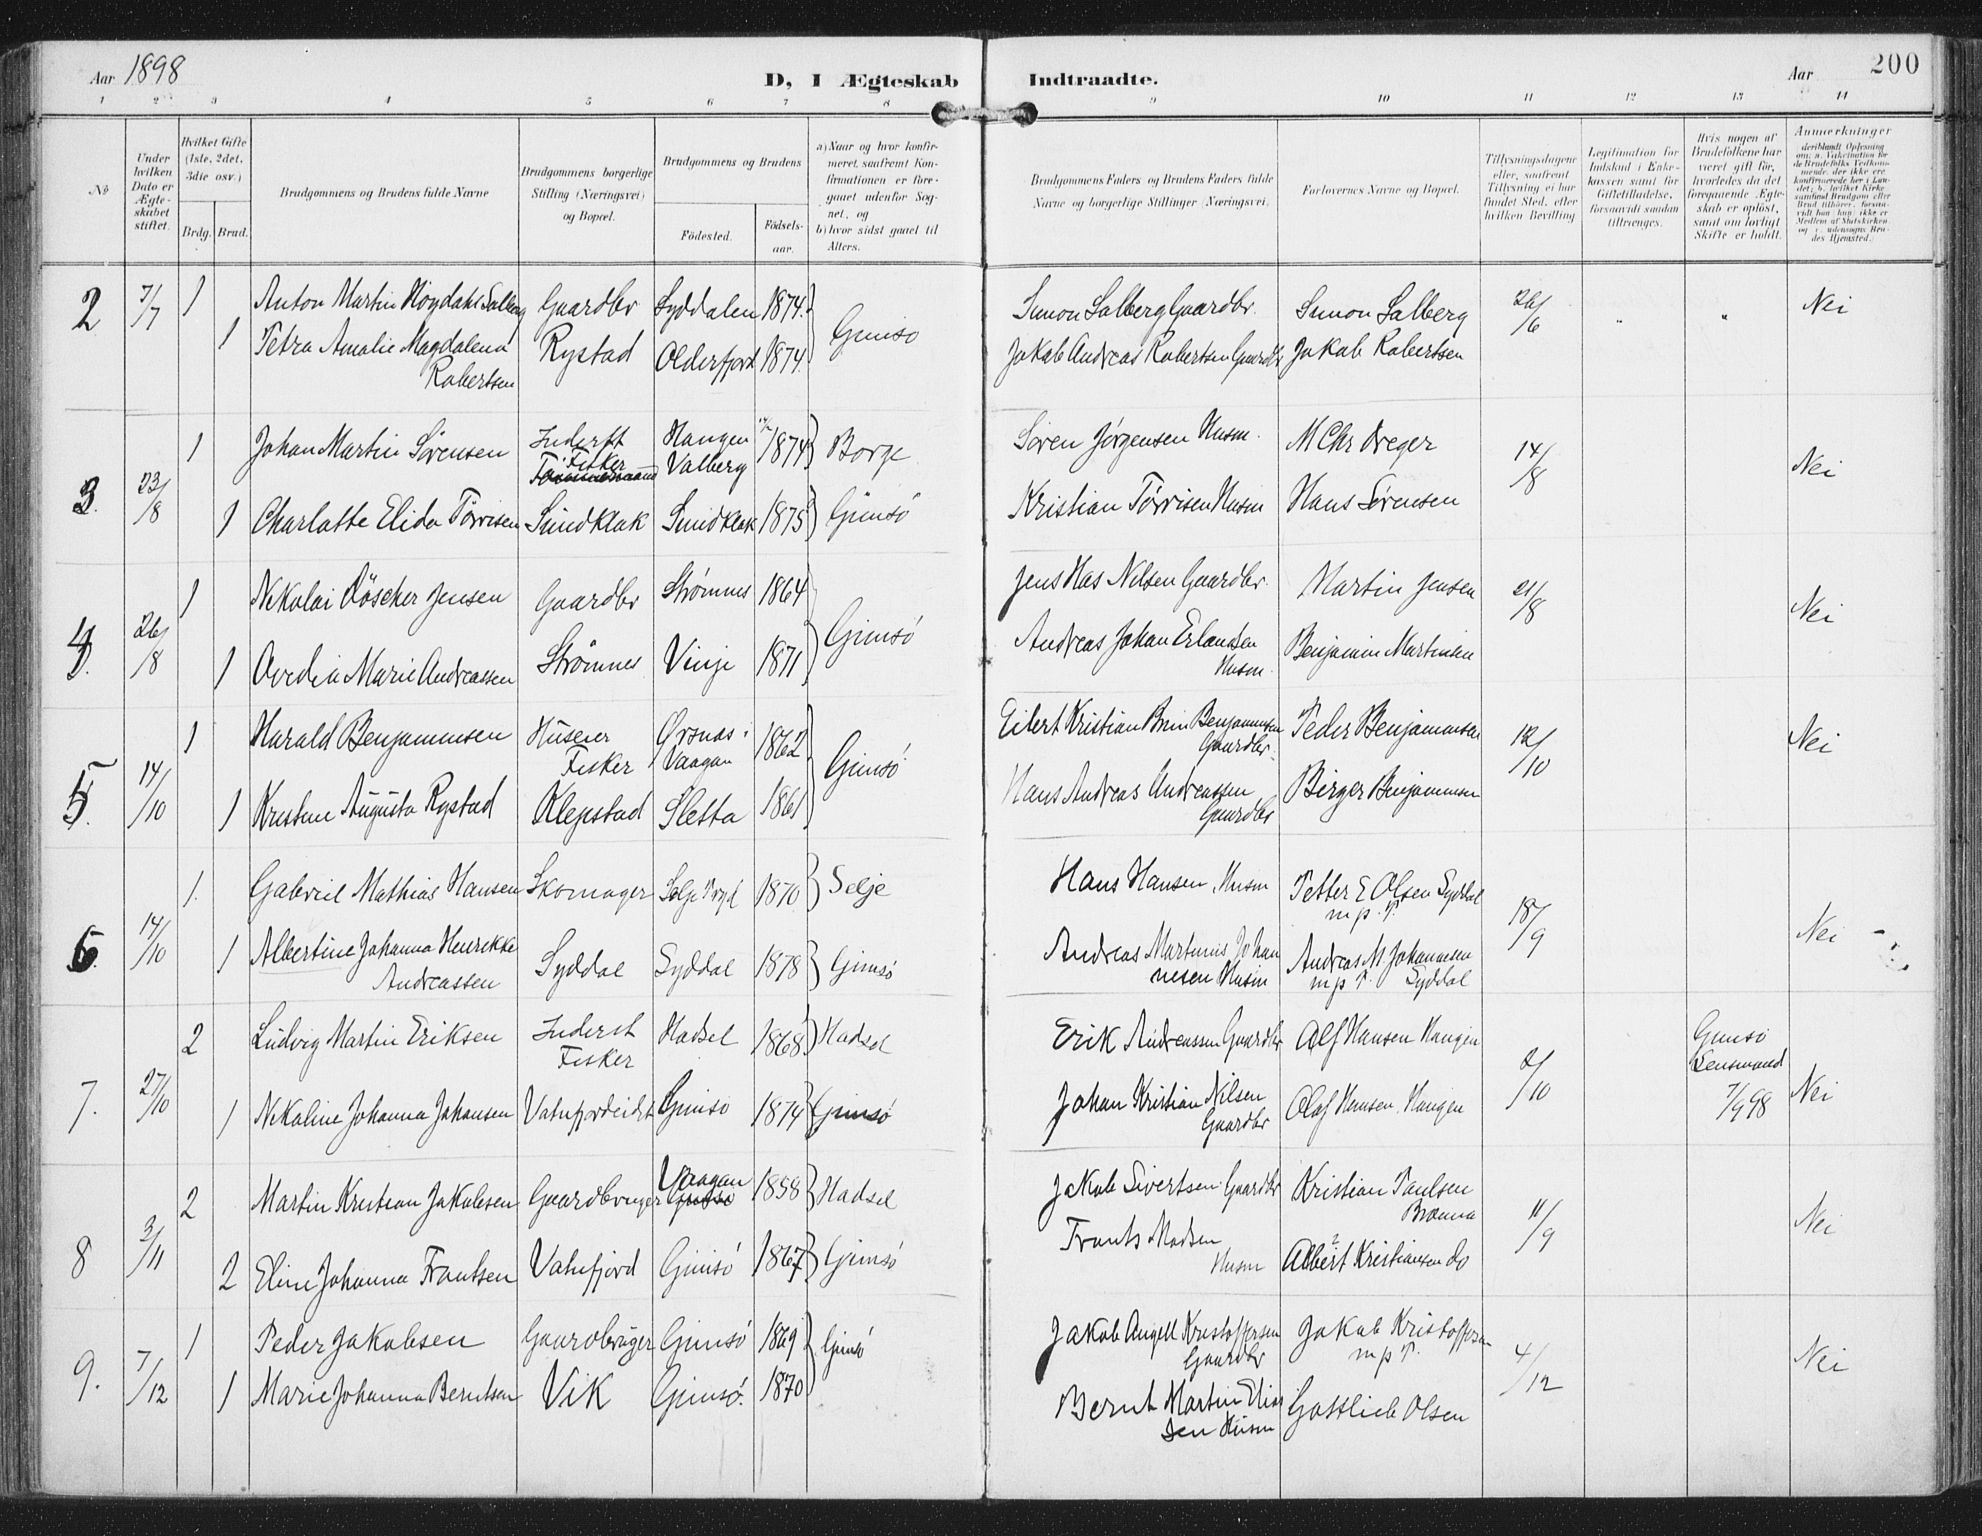 Aar 1898
D, I Ægteskab Indtraadte.
Aar 200
1 2 3 4 5 6 7 8 9 10 11 12 13 14
No
Under hvilken Dato er Ægteskabet stiftet.
Hvilket Gifte (1ste, 2det, 3die osv.)
Brdg. Brud.
Brudgommens og Brudens fulde Navne
Brudgommens borgerlige Stilling (Næringsvei) og Bopæl.
Brudgommens og Brudens
Fødested. Fødsels-aar.
a) Naar og hvor konfirmeret, saafremt Konfirmationen er foregaaet udenfor Sognet, og
b) hvor sidst gaaet til Alters.
Brudgommens Faders og Brudens Faders fulde Navne og borgerlige Stillinger (Næringsvei).
Forlovernes Navne og Bopæl.
Tillysningsdagene eller, saafremt Tillysning ei har fundet Sted, efter hvilken Bevilling
Legitimation for Indskud i Enkekassen samt for Giftetilladelse, forsaavidt saadan tiltrænges.
Hvis nogen af Brudefolkene har været gift før, hvorledes da det foregaaende Ægteskab er opløst, samt om lovligt Skifte er holdt.
Anmerkninger
2 7/7 1 Anton Martin Høgdahl Salberg Gaardbr Syddalen 1874. Gimsø Simon Salberg Gaardbr. Simon Salberg 26/6 " " Nei
1 Petra Amalie Magdalena Rystad Olderfjord 1874 Jakob Andreas Robertsen Gaardbr Jakob Robertsen
Robertsen
3. 23/8 1 Johan Martin Sörensen Inderst Fisker Haugen Valberg 1874 Borge Sören Jørgensen Husm. M Chr Dreger 14/8 Nei
1 Charlotte Elida Tørrisen Sundklak Sundklak 1875 Gimsö Kristian Tørrisen Husm Hans Sørensen
4. 26/8 1 Nikolai Jensen Gaardbr Strømnes 1864 Gimsö Jens Has Nilsen Gaardbr. Martin Jensen 21/8 Nei
1 Ovedia Marie Andreassen Strømnes Vinje 1871 Andreas Johan Erlandsen Husm. Benjamin Martinsen
5. 14/10 1 Harald Benjaminsen Huseier Fisker Ørsnes i Vaagan 1862 Gimsö Eilert Kristian Benjaminsen Gaardbr. Peder Benjaminsen 12/10 Nei
1 Kristine Augusta Rystad Klepstad Sletta 1861 Hans Andreas Andreassen Gaardbr Birger Benjaminsen
6. 14/10 1. Gabriel Mathias Hansen Skomager 1870 Selje Hans Hansen, Husm Petter E Olsen Syddal m.p.P. 18/9 Nei
1 Albertine Johanna Henrikke Andreassen Syddal Syddal 1878 Gimsö Andreas Martinus Johannesen Husm Andreas M Johannesen m p P. Syddal
7. 27/10 2 Ludvig Martin Eriksen Inderst Fisker Hadsel 1868 Hadsel Erik Andreassen Gaardbr Alf Hansen Haugen 2/10 Gimsö Lensmand 7/9 98 Nei
1 Nikoline Johanna Johansen Vatnfjordeidet Gimsö 1874 Gimsö Johan Kristian Nilsen Gaardbr Olaf Hansen Haugen
8 3/11 2 Martin Kristian Jakobsen Gaardbruger Vaagan Gimsö 1858 Hadsel Jakob Sivertsen Gaardbr Kristian Paulsen Brænna 11/9 Nei
2 Eline Johanna Frantsen Vatnfjord Gimsö 1867 Gimsö Frants Madsen Husm Albert Kristiansen do
9. 7/12 1 Peder Jakobsen Gaardbruger Gimsö 1869 Gimsö Jakob Angell Kristoffersen Gaardbr Jakob Kristoffersen m p P. 4/12 Nei
1 Marie Johanna Berntsen Vik Gimsö. 1870 Bernt Martin Eliassen Husm Gottlieb Olsen